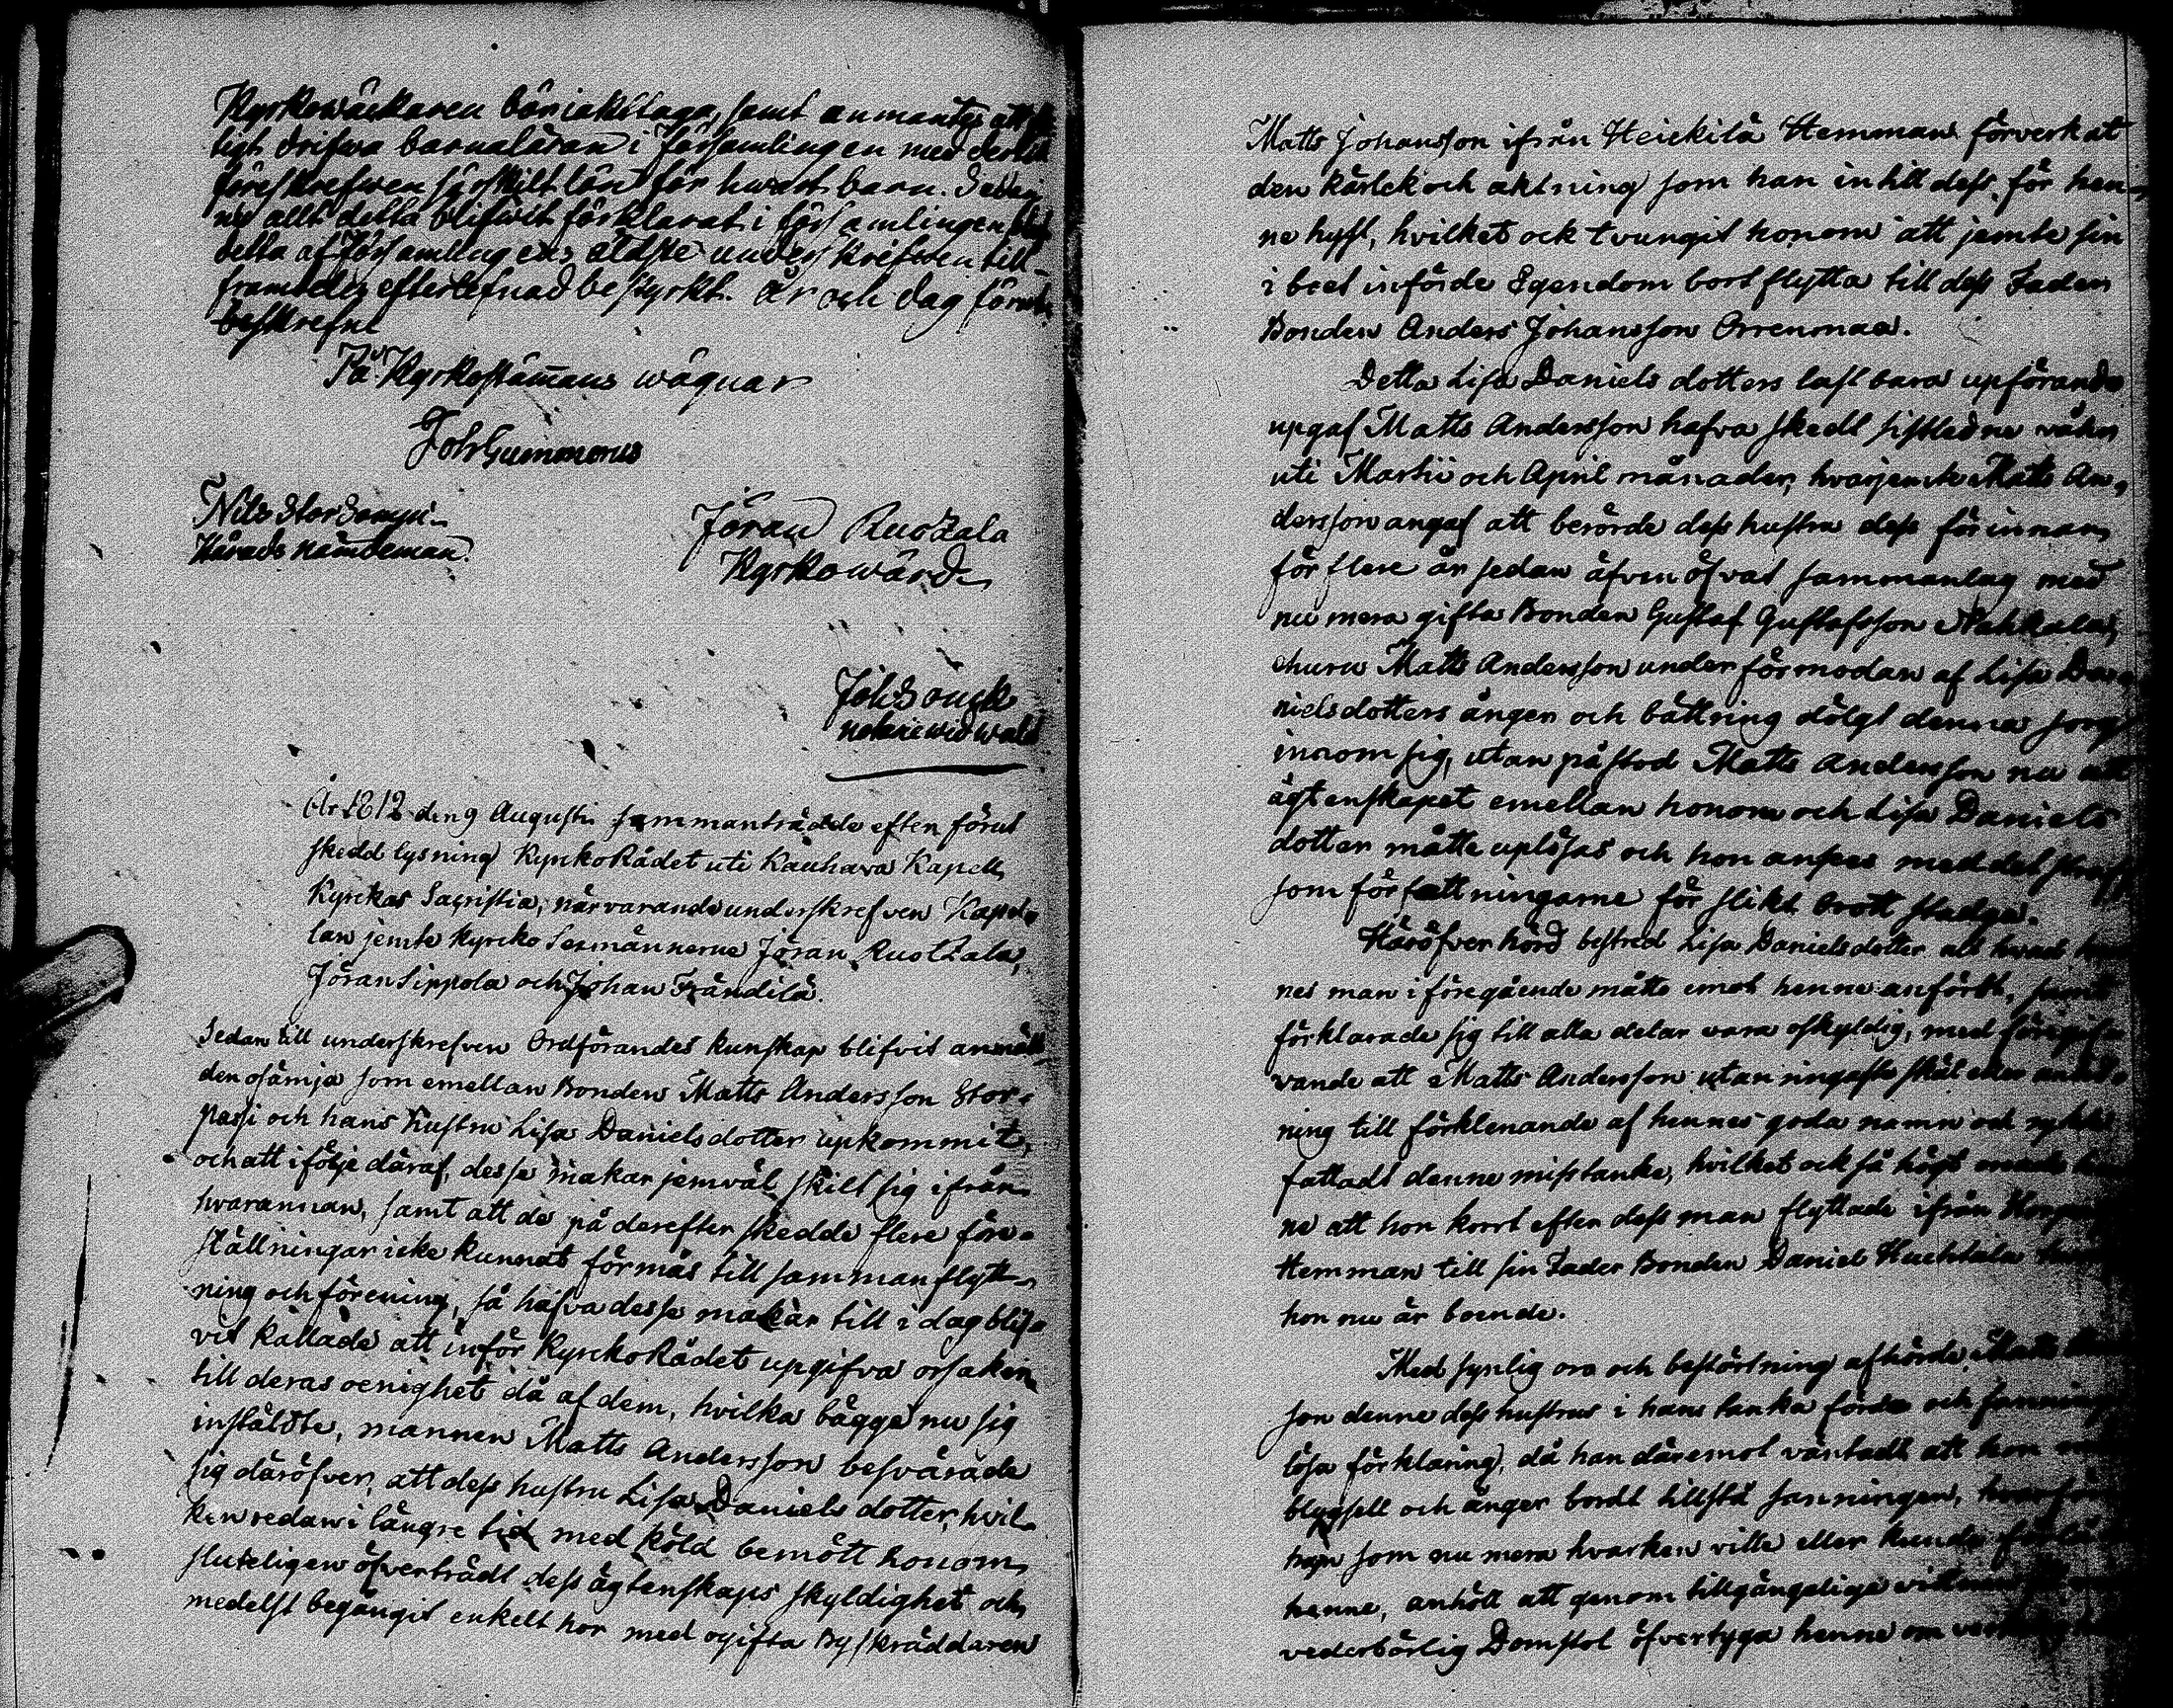 Kyrkowäckaren bör iakttaga, samt anmantes att
ligt drifwa barnaläran i Församlingen med der
föreskrefwen särskilt lön för hwart barn. Sedan
nu allt detta blifwit förklarat i församlingen
detta af Församlingens äldste underskrefwen till
framtida efterlefnad bestyrkt. År och dag förut
beskrefne
På Kyrkostämans wägnar
Joh Gummerus
Nils Storsorpi
Härads nämdeman
Jöran Ruotzala
Kyrkowärd
Joh
År 1812 den 9 Augusti sammanträdde efter förut
skedd lysning KyrckoRådet uti Kauhava Kapell
Kyrckas Sacristia, närvarande underskrefven Kapel-
lan jemte Kyrcko Sexmännerne Jöran Ruotzala,
Jöran Sippola och Johan Frändilä.
Sedan till underskrefven Ordförandes kunskap blifvit anmält
den osämja som emellan Bonden Matts Andersson Stor-
passi och hans Hustru Lisa Danielsdotter upkommit,
och att i följe däraf, desse makar jemväl skilt sig ifrån
hvarannan, samt att de på derefter skedde flere före-
ställningar icke kunnat förmås till sammanflytt-
ning och förening, så hafva desse makar till i dag blif-
vit kallade att inför KyrckoRådet upgifva orsaken
till deras oenighet då af dem, hvilka bägge nu sig
instäldte, mannen Matts Andersson besvärade
sig däröfver, att dess hustru Lisa Daniels dotter, hvil-
ken redan i längre tid med köld bemött honom,
sluteligen öfverträdt dess ägtenskaps skyldighet och
medelst begångit enkelt hor med ogifta Byskräddaren
Matts Johansson ifrån Heickilä Hemman förverkat
den kärlek och aktning som han intill dess för hen-
ne hyst, hvilket ock tvungit honom att jemte sin
i boet införde Egendom bortflytta till dess Fader
Bonden Anders Johansson Orrenmaa.
Detta Lisa Daniels dotters lastbara upförande
upgaf Matts Andersson hafva skedt sistledne våhr
uti Martii och April månader, hvarjemte Matts An-
dersson angaf att berörde dess hustru dess förinnan
för flere år sedan äfven öfvat sammanlag med
nu mera gifta Bonden Gustaf Gustafsson Nahkala,
ehuru Matts Andersson under förmodan af Lisa Da-
nielsdotters ånger och bättring dölgt denna sorg
innom sig, utan påstod Matts Andersson nu att
ägtenskapet emellan honom och Lisa Daniels
dotter måtte uplösas och hon anses med det straff
som författningarne för slikt brott stadga.
Häröfver hörd bestred Lisa Danielsdotter alt hvad hen
nes man i föregående måtto emot henne anfördt, samt
förklarade sig till alla delar vara oskyldig, med föregif
vande att Matts Andersson utan ringaste skäl eller anled-
ning till förklenande af hennes goda namn och rykte
fattadt denne misstanke, hvilket ock så högt
ne att hon kort efter dess man flyttade ifrån
Hemman till sin Fader Bonden Daniel Huchtala
hon nu är boende.
Med synlig oro och bestörtning afhörde Matts
son denne dess hustrus i hans tanka förde och sannings
lösa förklaring, då han däremot väntadt att hon
blygsell och ånger bordt tillstå sanningen,
han som nu mera hvarken ville eller kunde
henne, anhöll att genom tillgängeliga vittnen
vederbörlig Domstol öfvertyga henne om